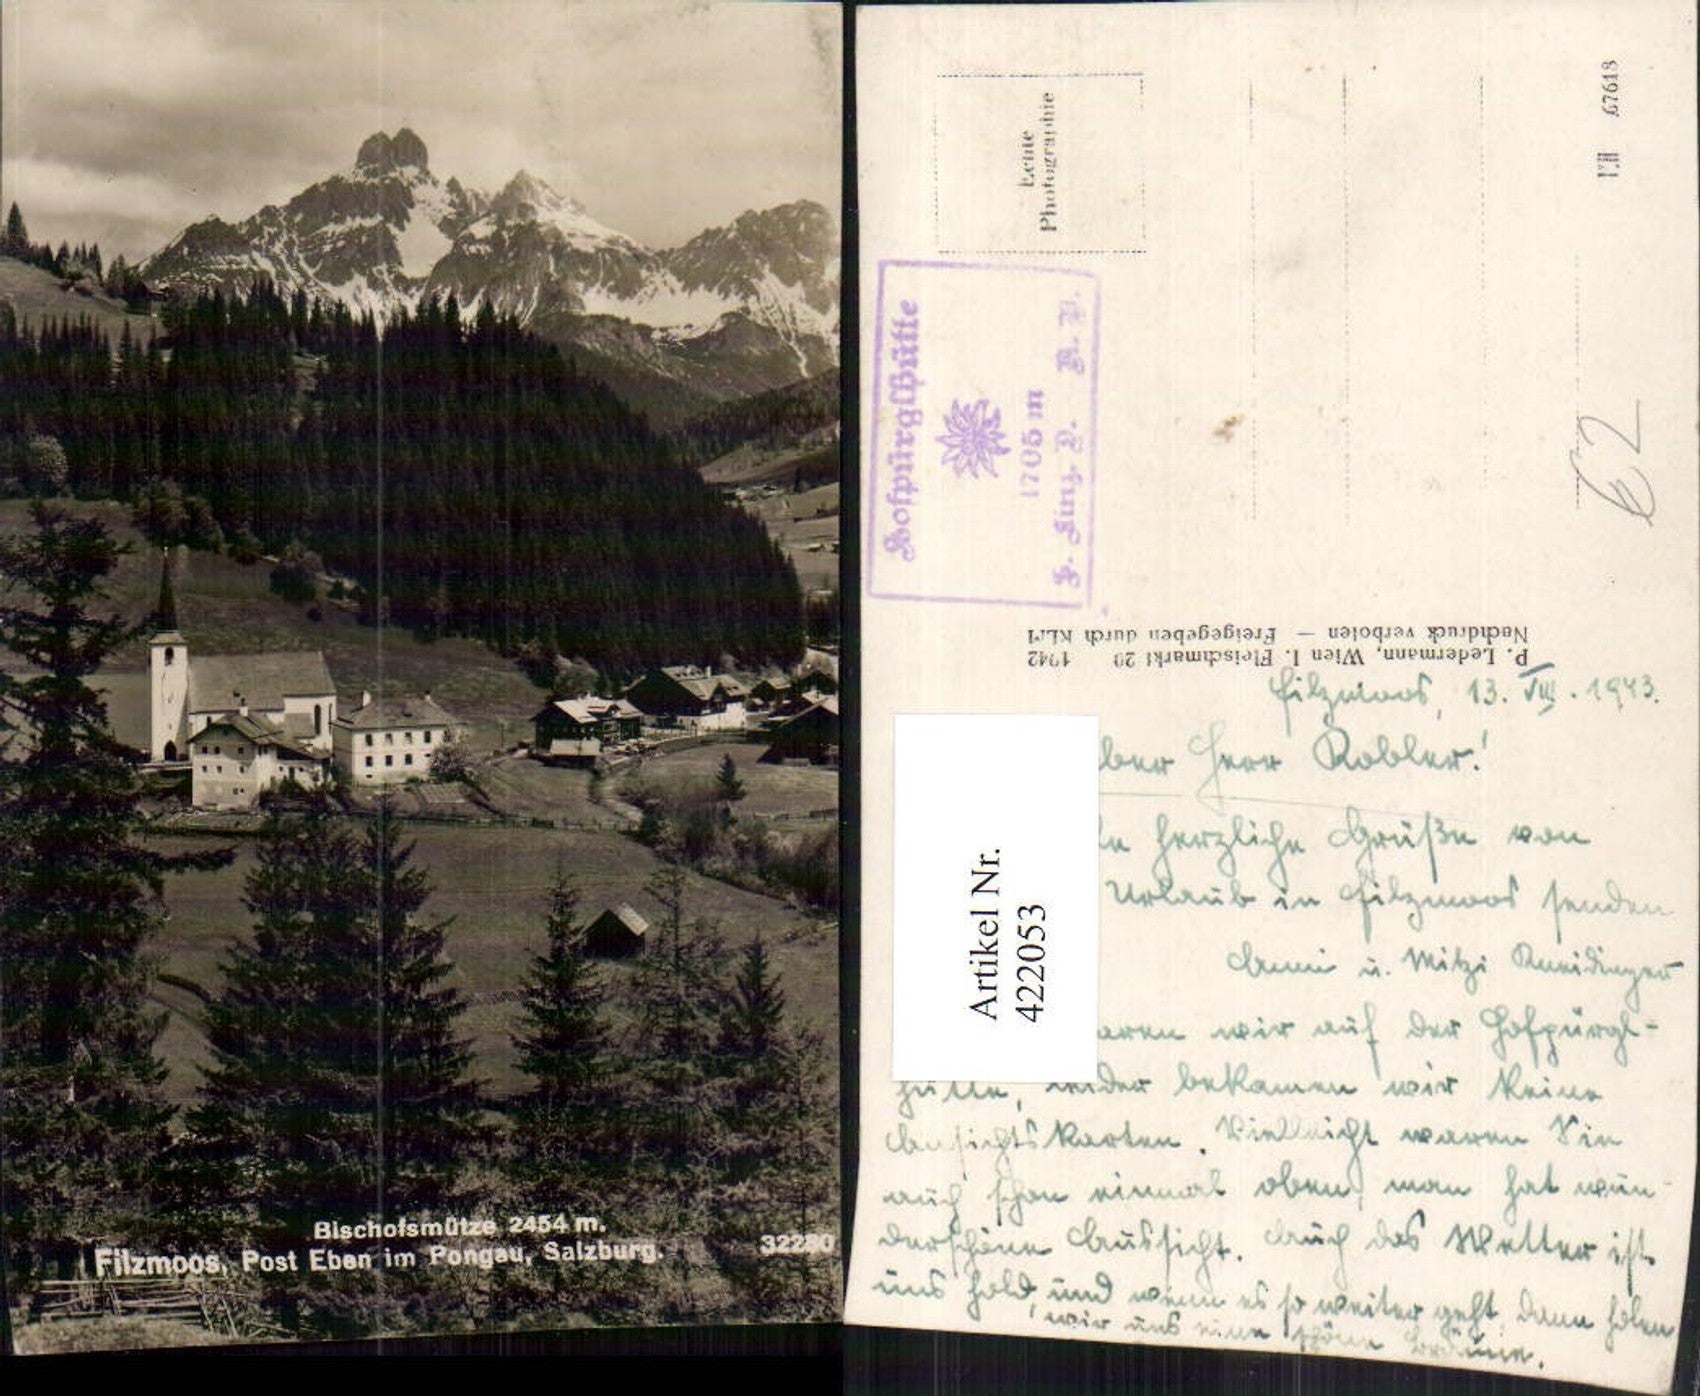 Bischofsmütze 2454 m.
Filzmoos, Post Eben im Pongau, Salzburg.
32280
Echte
Photographie
67618
Hofpürglhütte
1705 m
S. Linz. D. A. V.
P. Ledermann, Wien I. Fleischmarkt 20 1942
Nachdruck verboten — Freigegeben durch RLM
€2
Artikel Nr.
422053
Filzmoos, 13. VIII. 1943.
ber Herr Kobler!
le herzliche Grüße von
Urlaub in Filzmoos senden
Anni u. Mitzi Kneidinger
aren wir auf der Hofpürgl-
hütte, leider bekamen wir keine
Ansichtskarten. Vielleicht waren Sie
auch schon einmal oben, man hat wun-
derschöne Aussicht. Auch das Wetter ist
uns hold, und wenn es so weiter geht, dann holen
wir uns eine schöne Bräune.